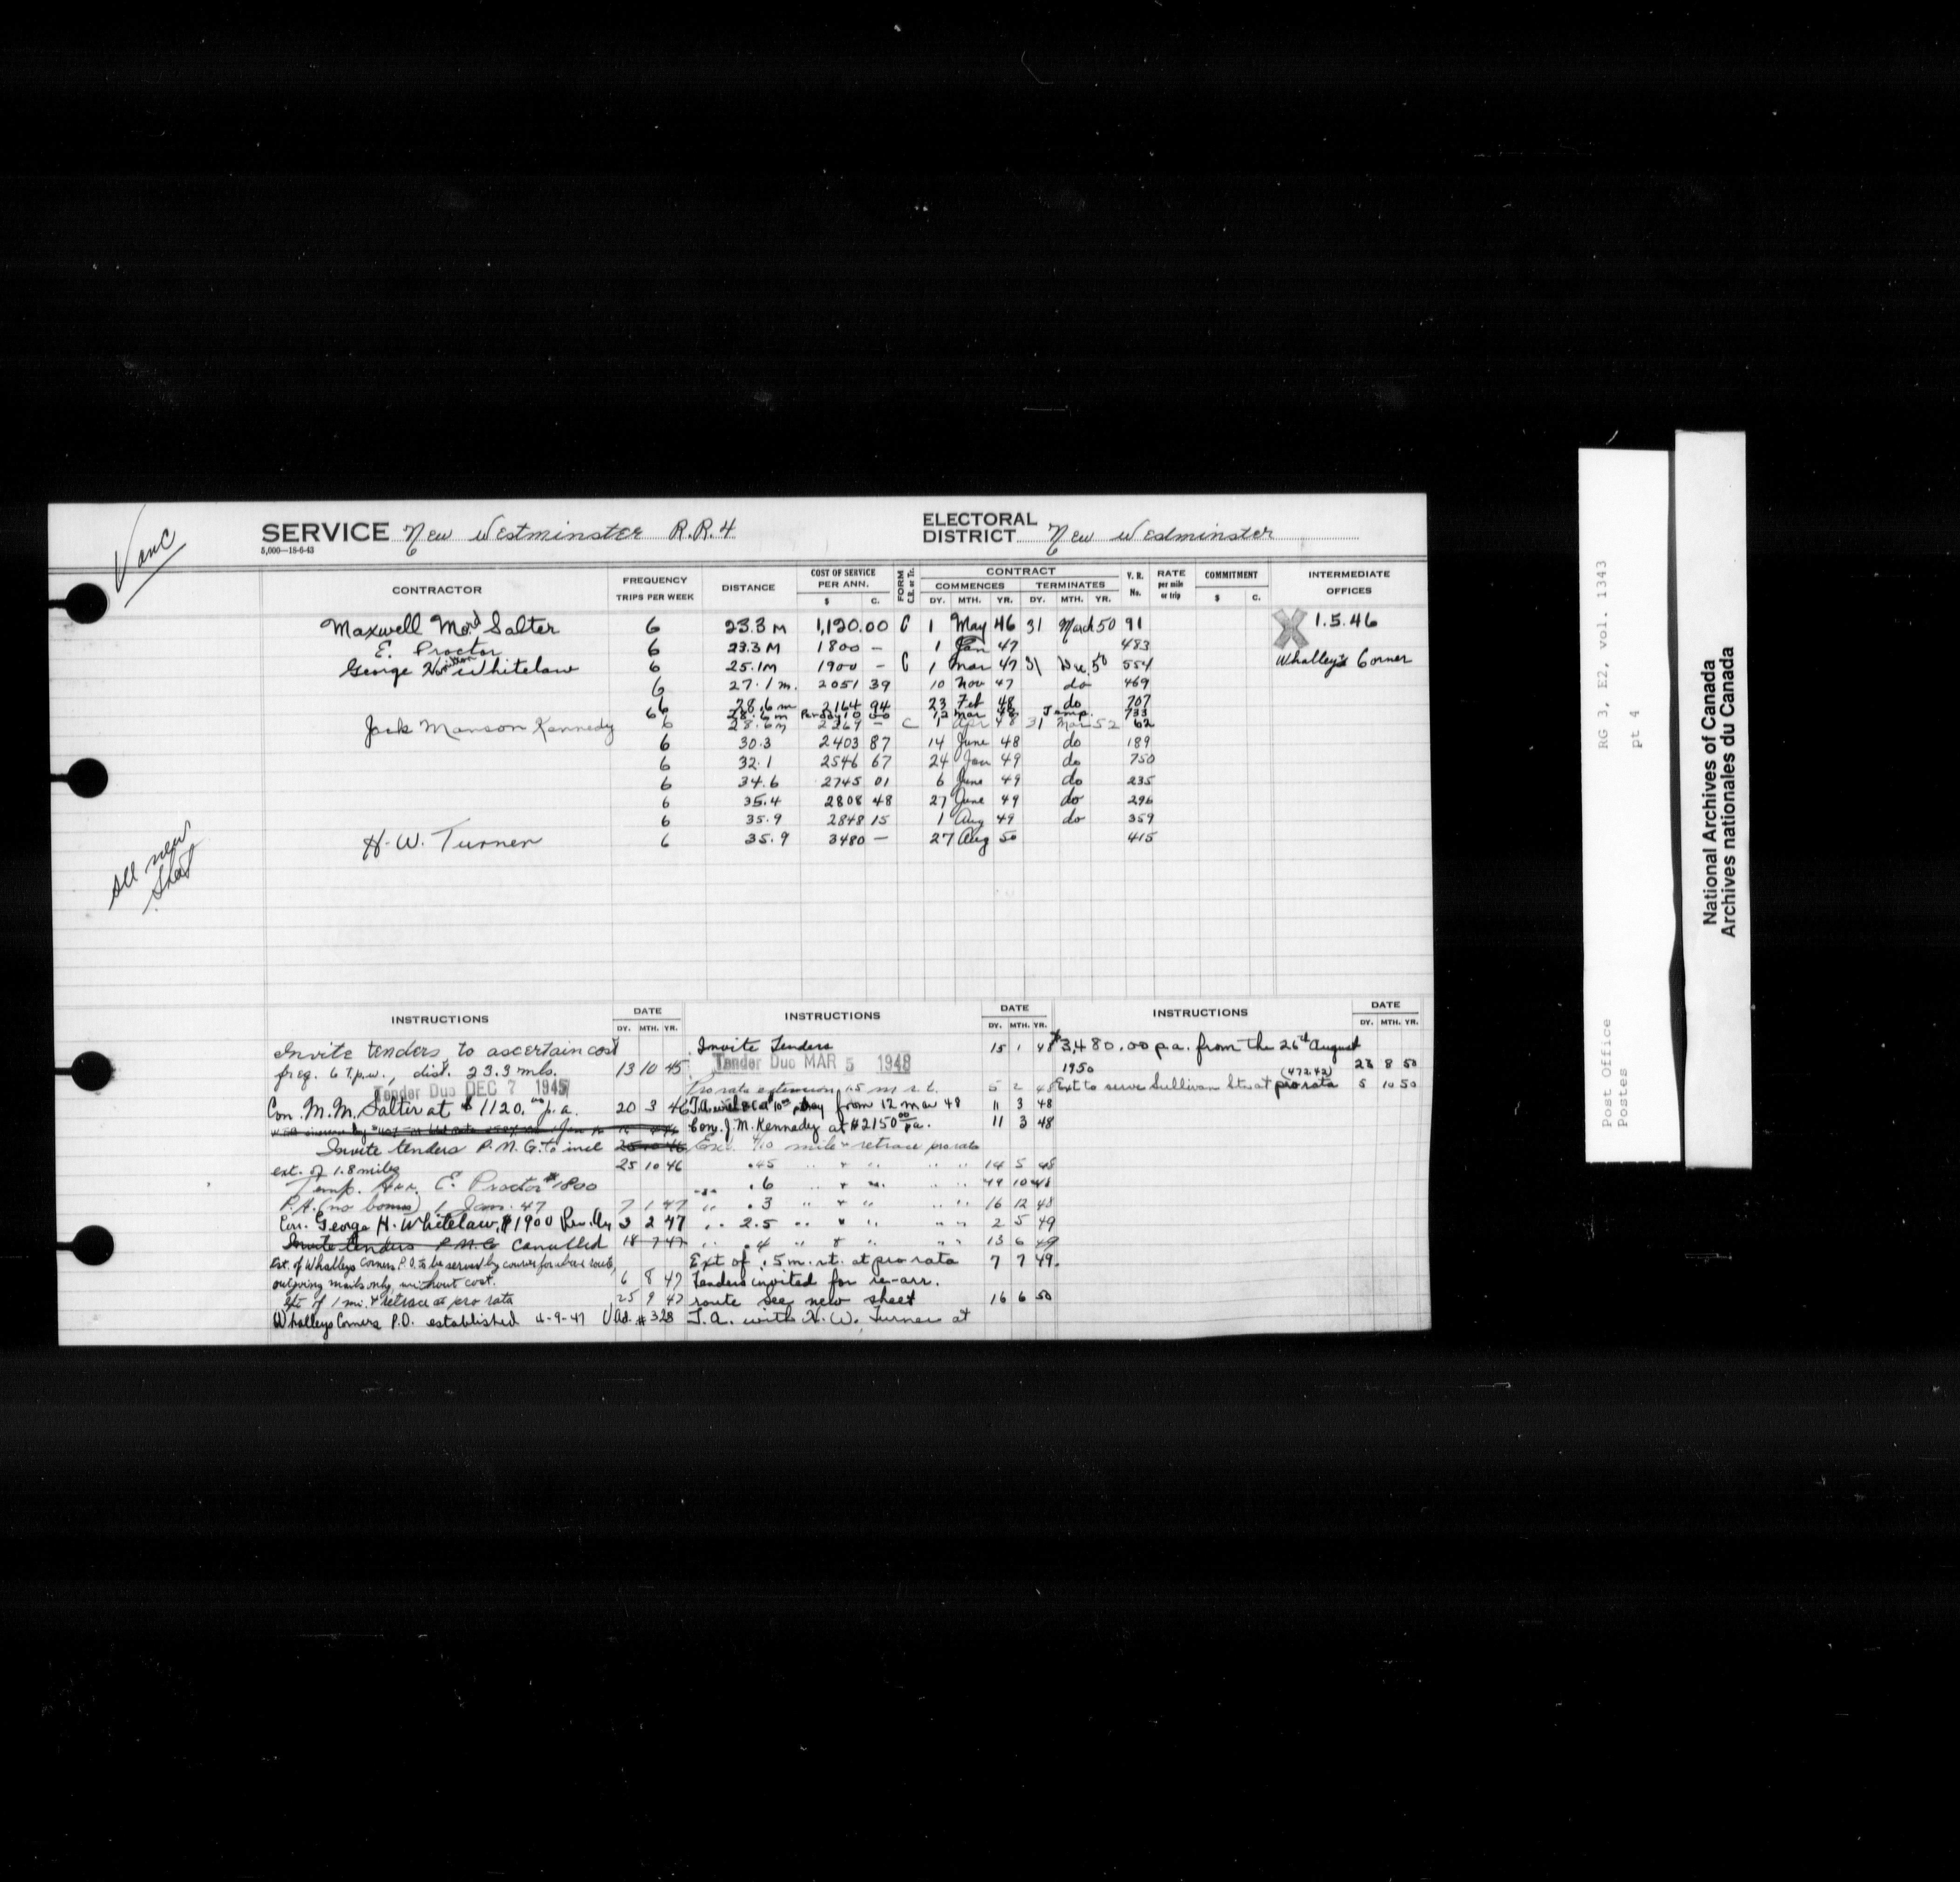 Vanc
SERVICE New Westminster R.R.4
5,000—15-6-43
ELECTORAL DISTRICT New Westminster
CONTRACTOR FREQUENCY TRIPS PER WEEK DISTANCE COST OF SERVICE PER ANN. $ C. FORM C.B. or Tr. CONTRACT COMMENCES DY. MTH. YR. TERMINATES DY. MTH. YR. V. R. No. RATE per mile or trip COMMITMENT $ C. INTERMEDIATE OFFICES
Maxwell Mord Salter 6 23.3 M 1,120.00 C 1 May 46 31 March 50 91 X 1.5.46
E. Proctor 6 23.3 M 1800 — 1 Jan 47 483
George Hamilton Whitelaw 6 25.1M 1900 — C 1 Mar 47 31 Dec. 50 554 Whalley's Corner
6 27.1 m. 2051 39 10 Nov 47 do 469
6 28.6 m 2164 94 23 Feb 48 do 707
6 28.6 m Per day 10 00 12 Mar 48 Temp. 733
Jack Manson Kennedy 6 28.6 m C 1 Apr 48 31 Mar 52 62
6 30.3 2403 87 14 June 48 do 189
6 32.1 2546 67 24 Jan 49 do 750
6 34.6 2745 01 6 June 49 do 235
6 35.4 2808 48 27 June 49 do 296
6 35.9 2848 15 1 Aug 49 do 359
H. W. Turner 6 35.9 3480 — 27 Aug 50 415
see new sheet
INSTRUCTIONS DATE DY. MTH. YR.
Invite tenders to ascertain cost
freq. 6 t.p.w., dist. 23.3 mls. 13 10 45
Tender Due DEC 7 1945
Con. M.M. Salter at $1120.00 p.a. 20 3 46
Invite tenders P.M.G. to incl 25 10 46
ext. of 1.8 miles 25 10 46
Temp. Arr. E. Proctor $1800
P.A. (no bonus) 1 Jan. 47 7 1 47
Con. George H. Whitelaw, $1900 3 2 47
Invite tenders P.M.G. Cancelled 18 7 47
Est. of Whalleys Corners P.O. to be served by courier for above route,
outgoing mails only, without cost. 6 8 47
Ext of 1 mi. & retrace at pro rata 25 9 47
Whalleys Corners P.O. established 4-9-47 # 328
INSTRUCTIONS DATE DY. MTH. YR.
Invite Tenders 15 1 48
Tender Due MAR 5 1948
Pro rata extension 1.5 m r.t. 5 2 48
day from 12 Mar 48 11 3 48
Con. J.M. Kennedy at $2150.00 p.a. 11 3 48
Ext. 4/10 mile & retrace pro rata
.45 " & " " " 14 5 48
.6 " & " 10 48
" .3 " & " " " 16 12 48
" 2.5 " & " " " 2 5 49
" .4 " & " " " 13 6 49
Ext of .5 m. rt. at pro rata 7 7 49.
Tenders invited for re-arr.
route see new sheet 16 6 50
T.A. with H.W. Turner at
INSTRUCTIONS DATE DY. MTH. YR.
$3,480.00 p.a. from the 26th August
1950 23 8 50
(472.42)
Ext to serve Sullivan Stn at pro rata 5 10 50
RG 3, E2, vol. 1343
pt 4
Post Office
Postes
National Archives of Canada
Archives nationales du Canada